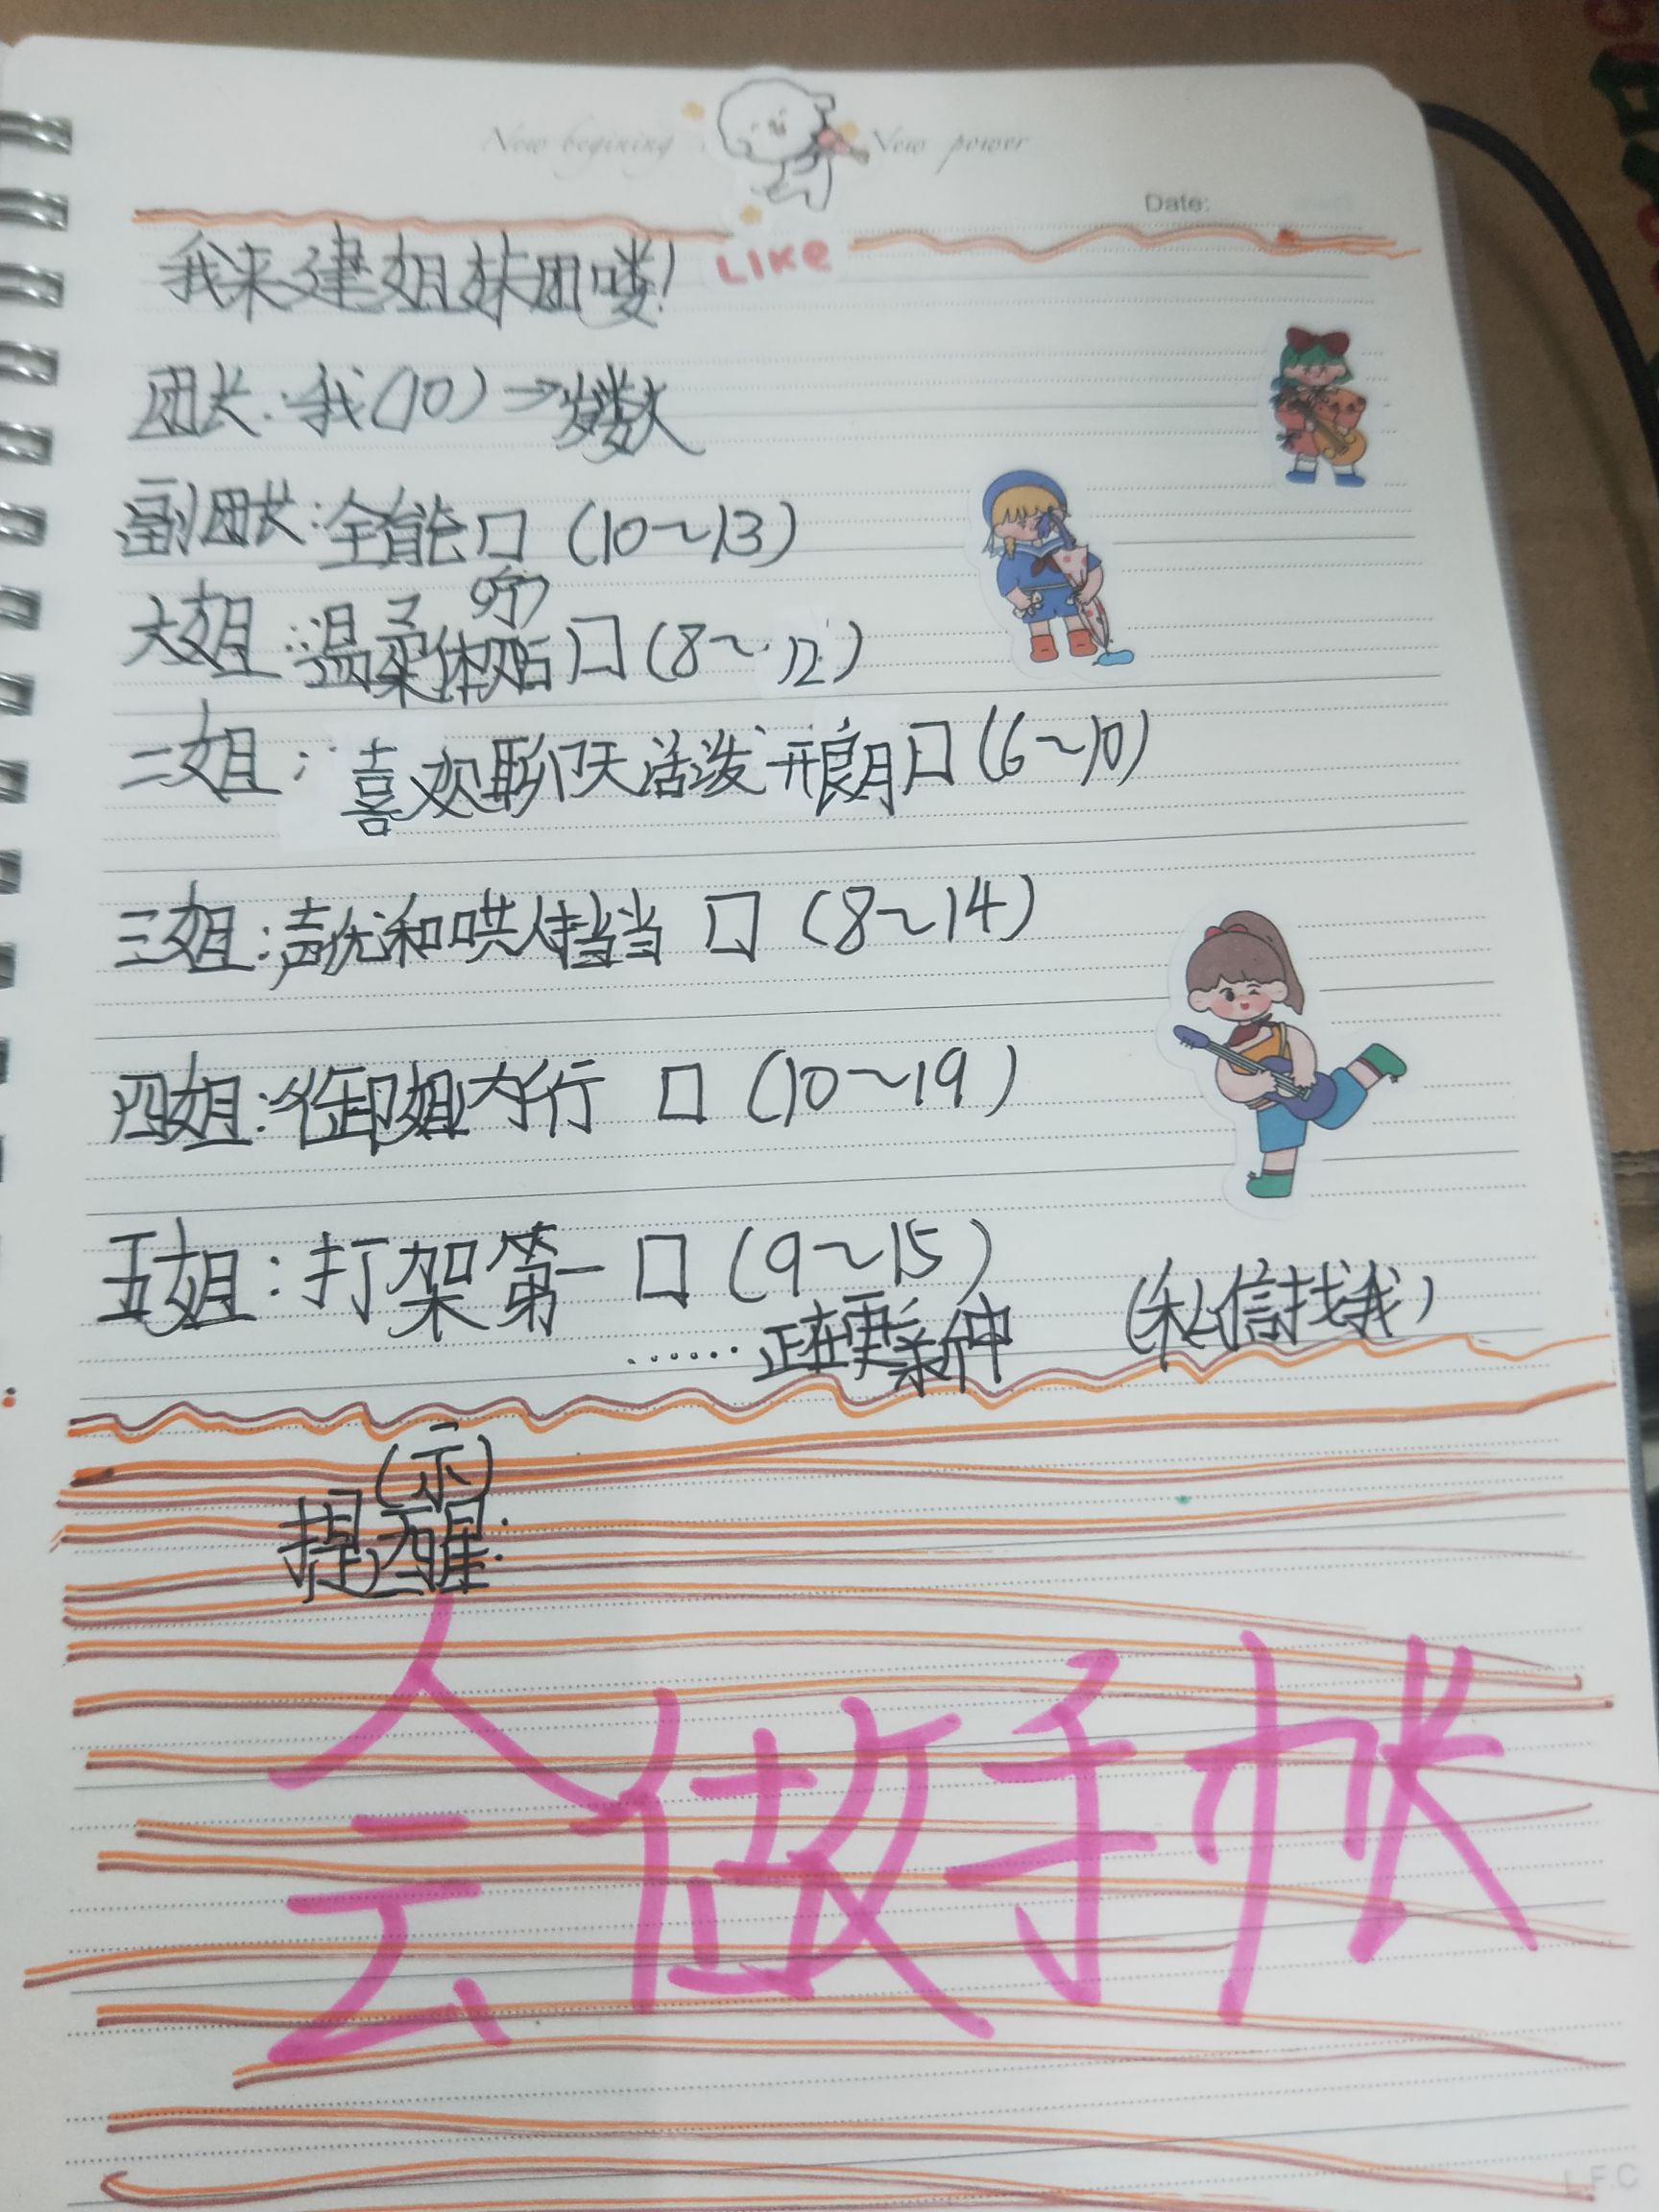 New begining New power
Date:
LIKE
我来建姐妹团喽!
团长:我(10)→岁数
副团长:全能口(10~13)
字
大姐:温柔体贴口(8~12)
二姐:喜欢聊天活泼开朗口(6~10)
三姐:声优和哄人担当 口(8~14)
四姐:御姐内行 口(10~19)
五姐:打架第一口(9~15)
……正在更新中 (私信找我)
(示)
提醒:
会做手帐
L.F.C